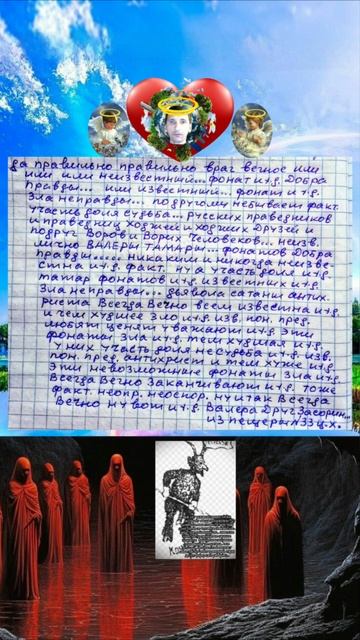 да правильно правильно враг вечное или
или или неизвестный.. фонат и т.д. Добра
Правды... или известный... фонаты и т.д.
Зла неправды.. по другому небывает факт.
участь доля судьба... русских праведников
и праведниц Ходжей и ходжих Друзей и
подруг Воров и Ворих Человеков... неизв.
лично ВАЛЕРЫ ТАМАРЫ... фонатов Добра
Правды...... никакими и никогда неизве-
стна и т.д. факт. ну а участь доля и т.д.
татар фонатов и т.д. известных и т.д.
Зла неправды... дьявола сатаны антих.
риста Всегда Вечно всем известна и т.д.
и чем худшее зло и т.д. изв. пон. пред.
любят ценят уважают и т.д. Эти
фонаты зла и т.д. тем худшая и т.д.
у них участь доля несудьба и т.д. изв.
пон. пред. антихрист и тем хуже и т.д.
Эти невозможные фонаты зла и т.д.
Всегда Вечно Заканчивают и т.д. тоже
факт. неопр. неоспор. ну и так Всегда
Вечно ну вот и т.д. Валера Друг Засорин
из пещеры №33 ц.х.